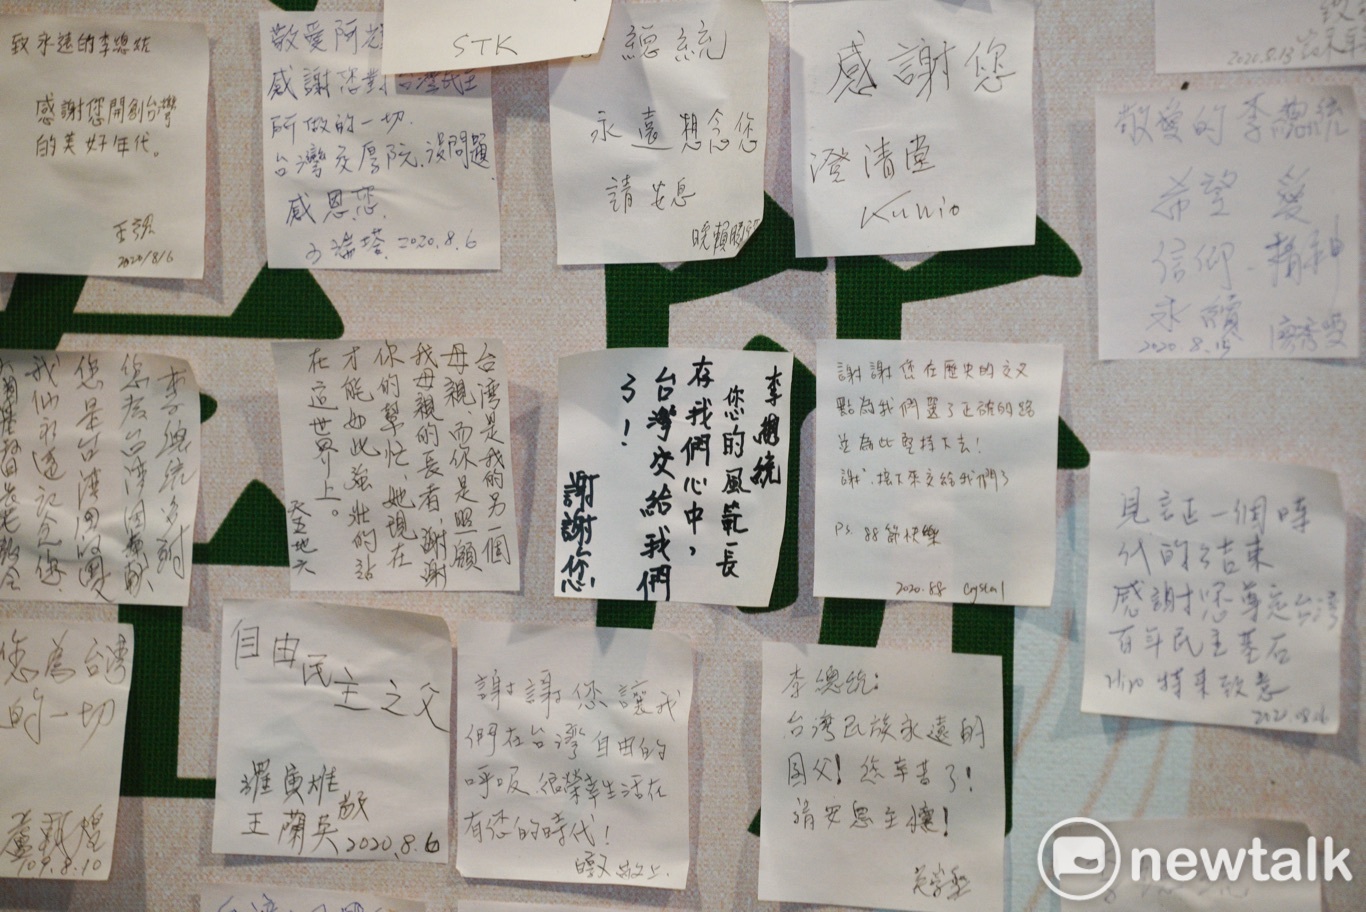 致永遠的李總統
感謝您開創台灣
的美好年代。
2020/8/6
敬愛阿
感謝您對台灣民主
所做的一切.
台灣交厚阮,沒問題.
感恩您.
2020.8.6
STK
總統
永遠想念您
請安息
感謝您
澄清堂
Kunio
2020.8.13
敬愛的李總統
希望 愛
信仰、精神
永續
2020.8.15
李總統多謝
您為台灣
您是台灣
我们永遠記念您
台灣是我的另一個
母親、而你是照顧
我母親的長者,謝謝
你的幫忙,她現在
才能如此強壯的站
在這世界上。
李總統
您的風範長
存我們心中,
台灣交給我們
了!
謝謝您
謝謝您在歷史的交叉
點為我們選了正確的路
並為此堅持下去!
謝、接下來交給我們了
PS. 88節快樂
2020.8.8 Crystal
見証一個時
代的结束
感謝您奠定台灣
百年民主基石
特來致意
您為台灣
的一切
109.8.10
自由民主之父
羅寅雄
王蘭英 敬
2020.8.6
謝謝您讓我
們在台灣自由的
呼吸,很榮幸生活在
有您的時代!
敬上.
李總統:
台灣民族永遠的
国父!您辛苦了!
請安息主懷!
newtalk